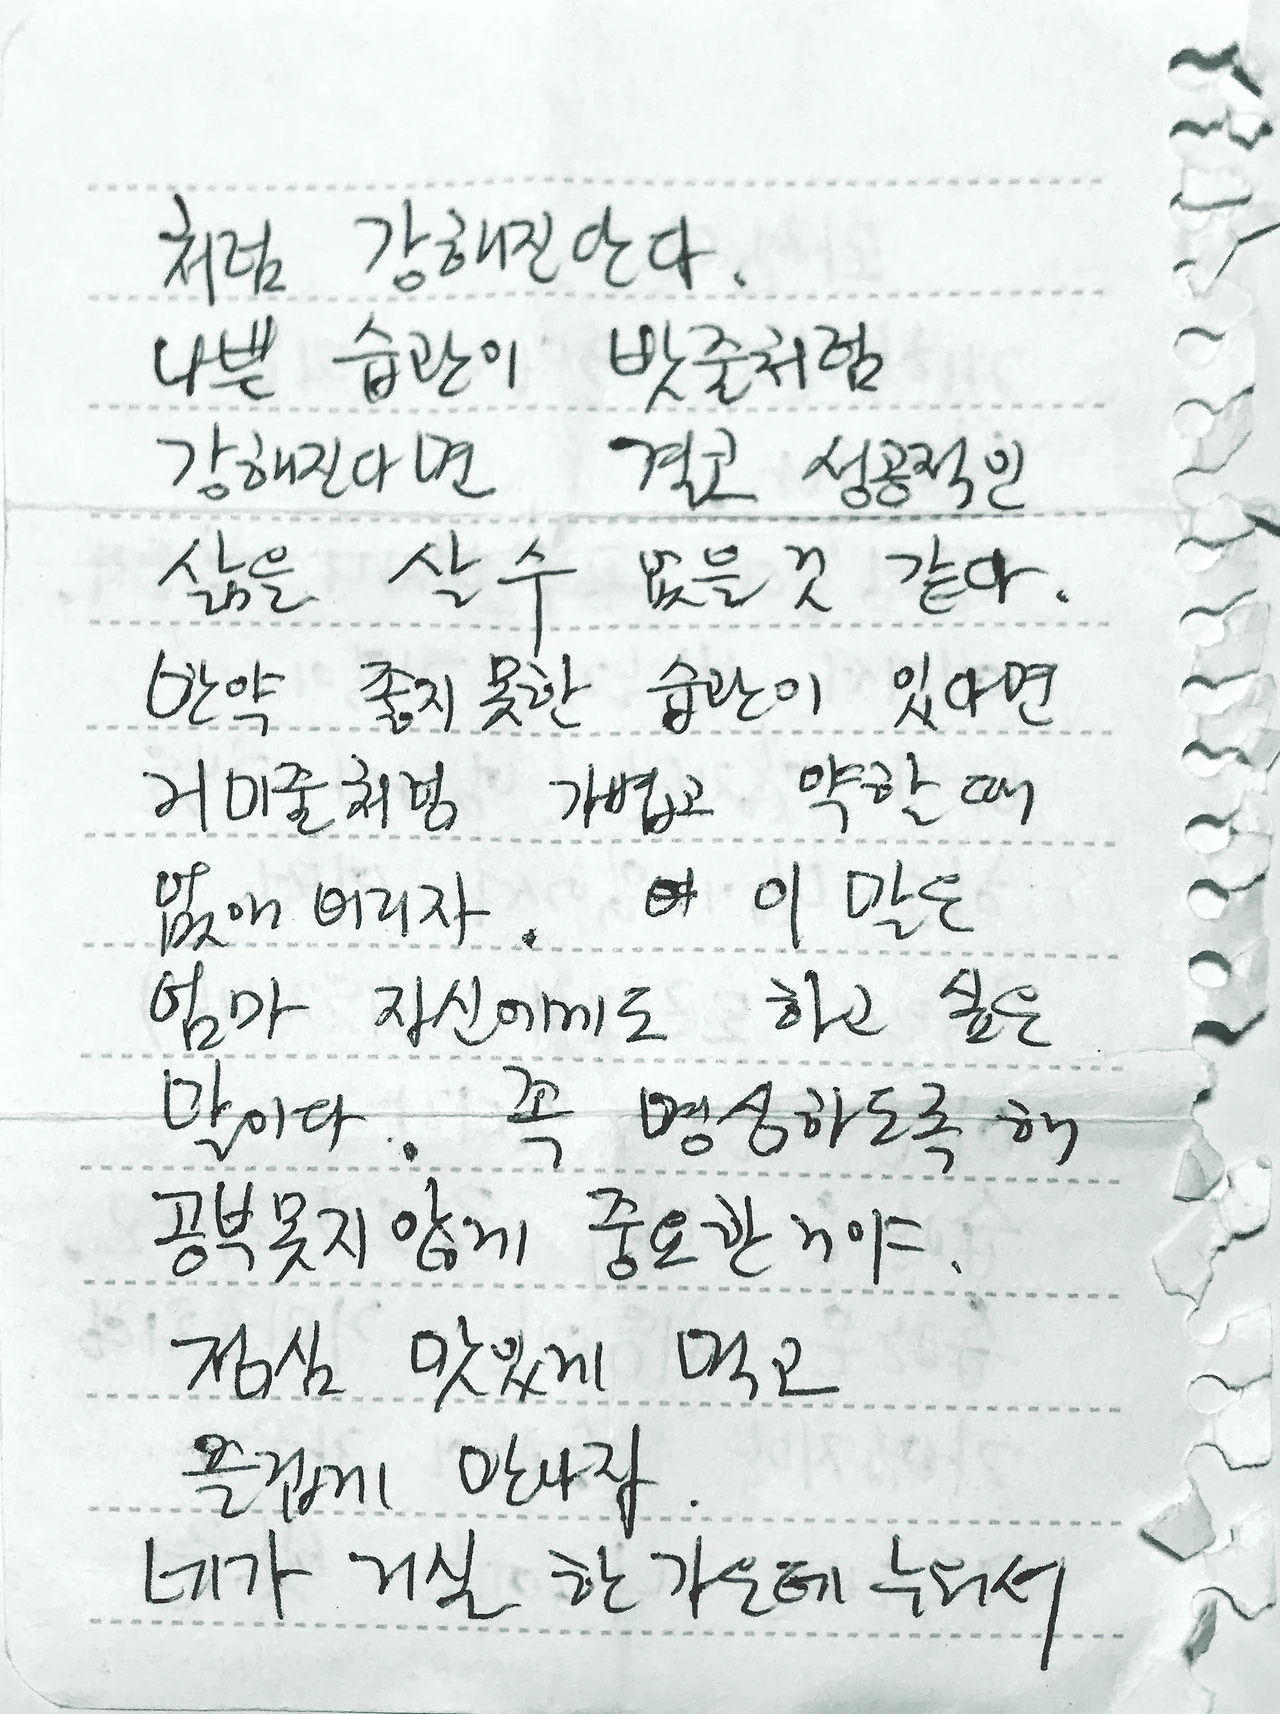 처럼 강해진단다.
나쁜 습관이 밧줄처럼
강해진다면 결코 성공적인
삶을 살 수 없을 것 같다.
만약 좋지 못한 습관이 있다면
거미줄처럼 가볍고 약할 때
없애 버리자. 이 말은
엄마 자신에게도 하고 싶은
말이다. 꼭 명심하도록 해
공부 못지 않게 중요한 거야.
점심 맛있게 먹고
즐겁게 만나자.
네가 거실 한 가운데 누워서